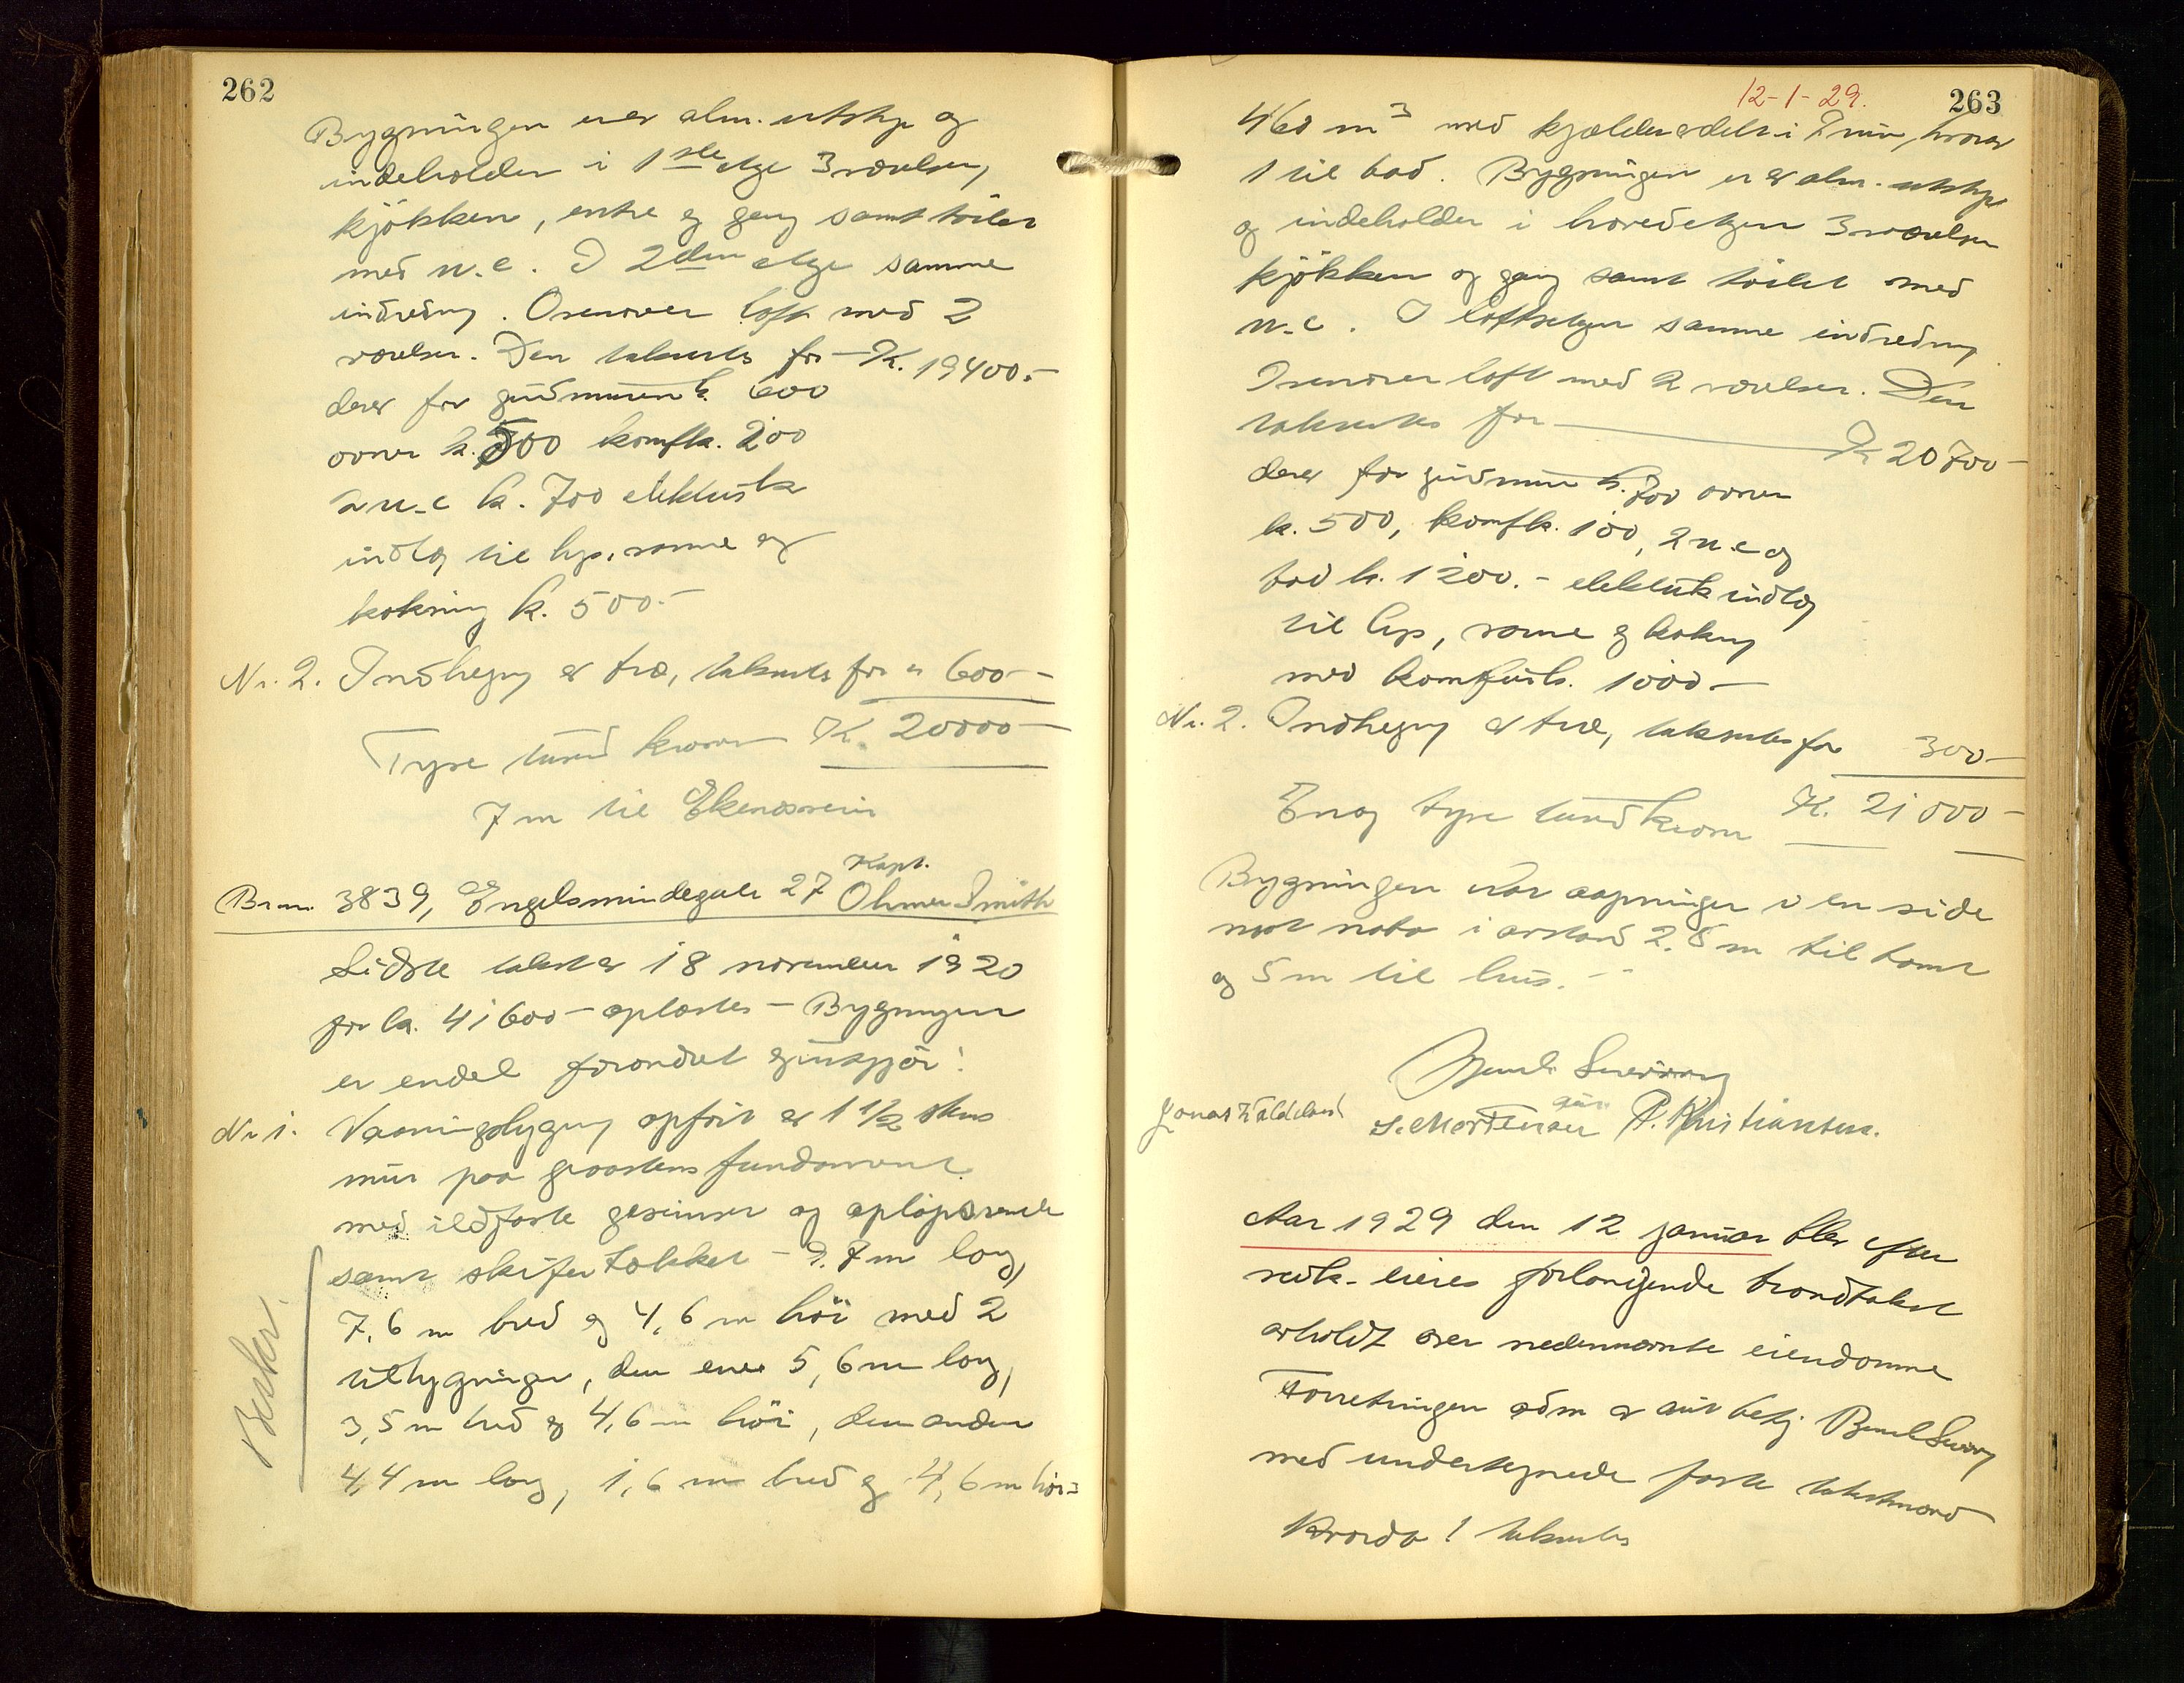 262
Bygningen er av alm. utstyr og
indeholder i 1ste etge 3 værelser,
kjökken, entre og gang samt toilet
med w.c. I 2den etge samme
indredn. Ovenover loft med 2
værelser. Den takseres for — K. 19400.-
derav for grundmuren k. 600
ovner k. 500 komfk. 200
2 w.c k. 700 elektrisk
indlæg til lys, varme og
kokning k. 500.-
Nr. 2. Indhegn av træ, takseres for " 600 -
Tyve tusind kroner K. 20000 -
7 m til Ekenæsvein
Br.nr. 3839, Engelsmindegate 27 Kapt. Ohmer Smith
Sidste takst av 18 november 1920
for k. 41600 - oplæstes - Bygningen
er endel forandret og utgjör:
Nr 1. Vaaningsbygning opfört av 1 1/2 stens
mur paa graastens fundament
med ildfaste gesimser og oplöpsrende
samt skifertækket - 9.7 m lang,
7,6 m bred og 4,6 m höi med 2
utbygninger, den ene 5,6 m lang,
3,5 m bred og 4,6 m höi, den anden
4,4 m lang, 1,6 m bred og 4,6 m höi =
12-1-29.
263
460 m3 med kjælder avdelt i 7 rum, hvorav
1 til bad. Bygningen er av alm. utstyr
og indeholder i hovedetgen 3 værelser
kjökken og gang samt toilet med
w.c. I loftsetgen samme indredning
Ovenover loft med 2 værelser. Den
takseres for — K 20700 -
derav for grundmur k. 700 ovner
k. 500, komfk. 100, 2 w.c og
bad k. 1200.- elektrisk indlæg
til lys, varme og kokning
med komfur k. 1000 -
Nr. 2. Indhegn av træ, takseres for 300 -
En og tyve tusind kroner K. 21000 -
Bygningen har aapninger i en side
mot nabo i avstand 2.8 m til tomt
og 5 m til hus. -
S. Mortensen P. Kristiansen.
Aar 1929 den 12 januar blev efter
vedk. eieres forlangende brandtakst
avholdt over nedennævnte eiendomme
Forretningen
med undertegnede faste takstmænd
Hvorda! takseres